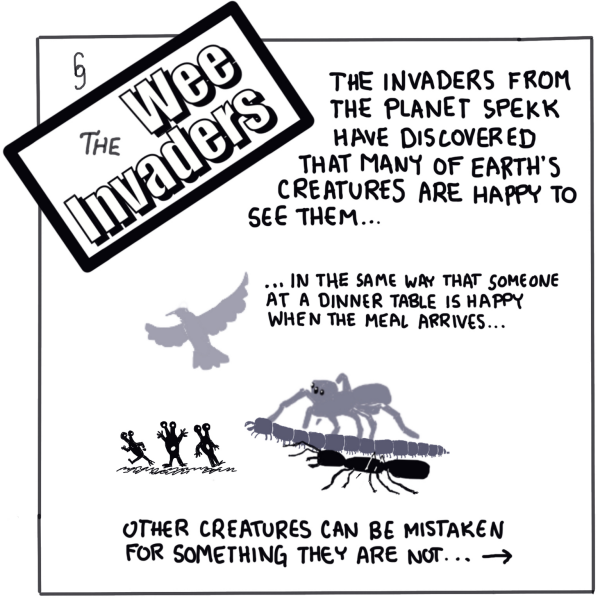 69
THE
Wee
Invaders
THE INVADERS FROM
THE PLANET SPEKK
HAVE DISCOVERED
THAT MANY OF EARTH'S
CREATURES ARE HAPPY TO
SEE THEM...
... IN THE SAME WAY THAT SOMEONE
AT A DINNER TABLE IS HAPPY
WHEN THE MEAL ARRIVES...
OTHER CREATURES CAN BE MISTAKEN
FOR SOMETHING THEY ARE NOT... →